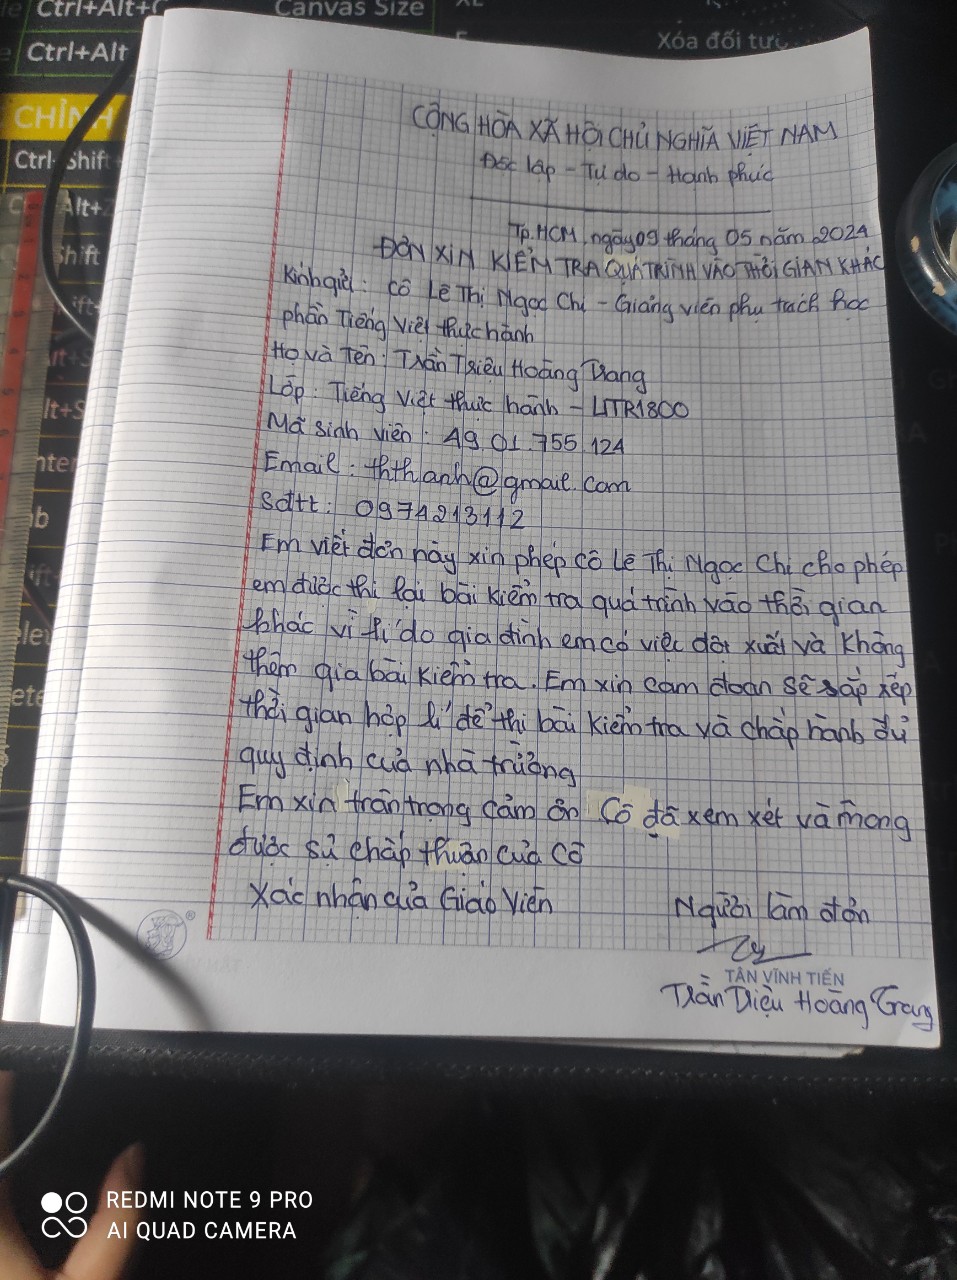 Ctrl+Alt+C
Canvas Size
Ctrl+Alt
Xóa đối tượ
CHỈNH
Ctrl+Shift+
Alt+
Shift
CỘNG HÒA XÃ HỘI CHỦ NGHĨA VIỆT NAM
Độc lập - Tự do - Hạnh phúc
Tp.HCM, ngày 09 tháng 05 năm 2024
ĐƠN XIN KIỂM TRA QUÁ TRÌNH VÀO THỜI GIAN KHÁC
Kính gửi: Cô Lê Thị Ngọc Chi - Giảng viên phụ trách học
phần Tiếng Việt thực hành
Họ và Tên: Trần Triệu Hoàng Trang
Lớp: Tiếng Việt thực hành - LITR1800
Mã sinh viên: 49.01.755.124
Email: ththanh@gmail.com
Sđtt: 0974213112
Em viết đơn này xin phép cô Lê Thị Ngọc Chi cho phép
em được thi lại bài kiểm tra quá trình vào thời gian
khác vì lí do gia đình em có việc đột xuất và không
thêm gia bài kiểm tra. Em xin cam đoan sẽ sắp xếp
thời gian hợp lí để thi bài kiểm tra và chấp hành đủ
quy định của nhà trường
Em xin trân trọng cảm ơn Cô đã xem xét và mong
được sự chấp thuận của Cô
Xác nhận của Giáo Viên
Người làm đơn
TÂN VĨNH TIẾN
Trần Triệu Hoàng Trang
REDMI NOTE 9 PRO
AI QUAD CAMERA